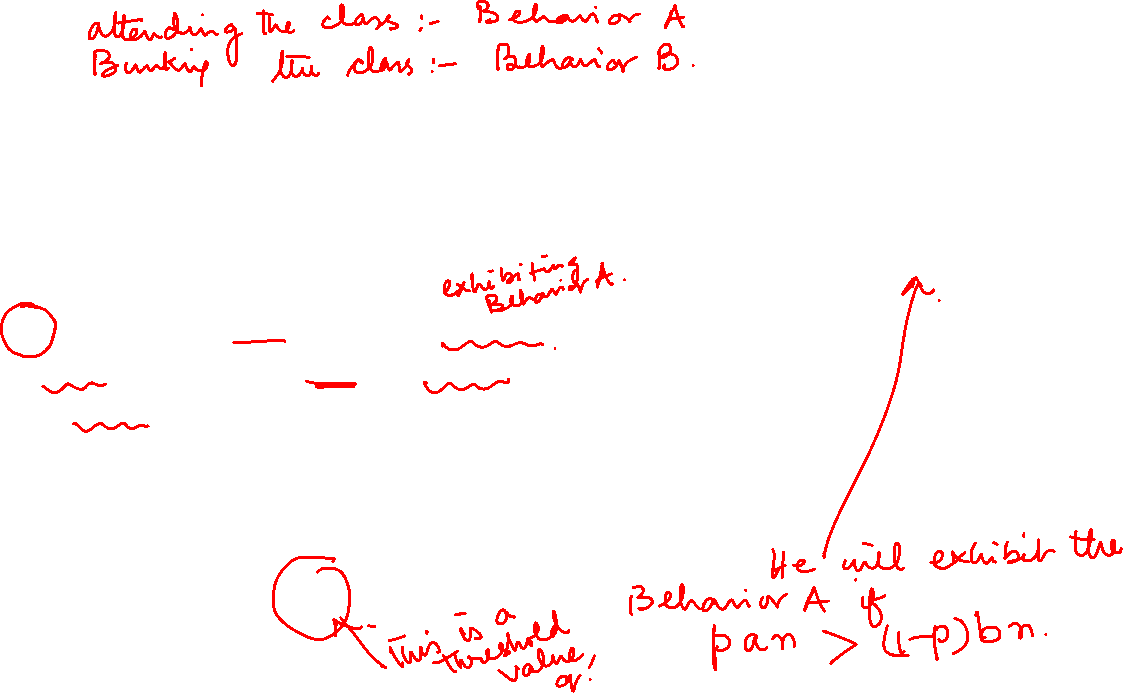 attending the class :- Behavior A
Bunking the class :- Behavior B.
exhibiting
Behavior A.
He will exhibit the
Behavior A if
pan > (1-p)bn.
This is a
threshold
value
of!